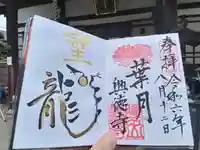 奉拝 令和六年
八月十二日
葉月
興徳寺
望
龍